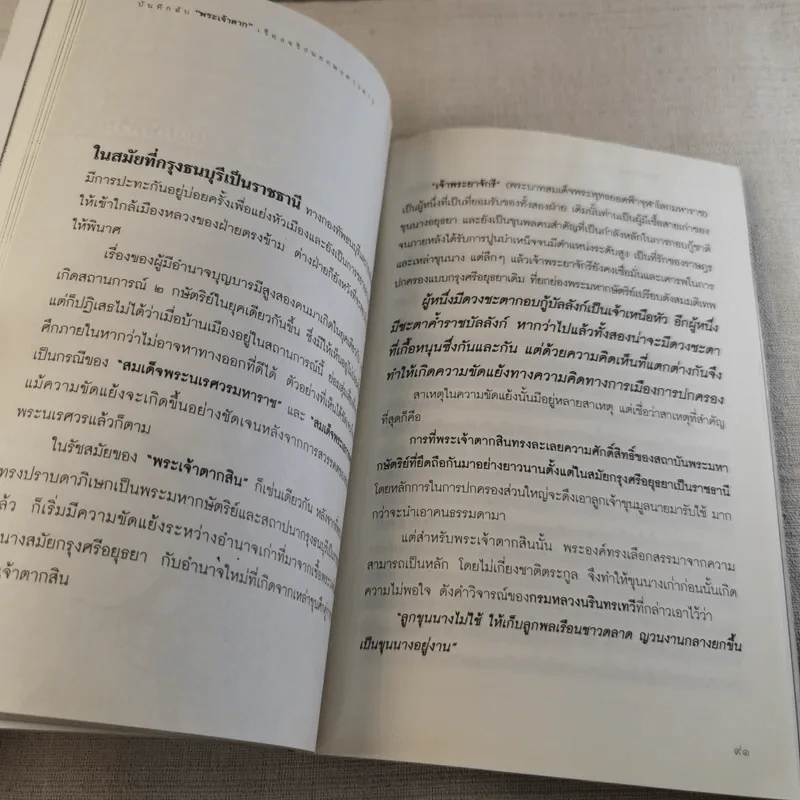 บันทึกลับ "พระเจ้าตาก"
ในสมัยที่กรุงธนบุรีเป็นราชธานี ทางกองทัพธนบุรี
มีการปะทะกันอยู่บ่อยครั้งเพื่อแย่งหัวเมืองและยังเป็นการ
ให้เข้าใกล้เมืองหลวงของฝ่ายตรงข้าม ต่างฝ่ายก็ยังหวัง
ให้พินาศ
เรื่องของผู้มีอำนาจบุญบารมีสูงสองคนมาเกิดในยุคเดียวกัน
เกิดสถานการณ์ ๒ กษัตริย์ในยุคเดียวกันขึ้น ซึ่งมีให้เห็นอยู่
แต่ก็ปฏิเสธไม่ได้ว่าเมื่อบ้านเมืองอยู่ในสถานการณ์นี้ ย่อม
ศึกภายในหากว่าไม่อาจหาทางออกที่ดีได้ ตัวอย่างที่เห็นได้
เป็นกรณีของ "สมเด็จพระนเรศวรมหาราช" และ "สมเด็จพระ
แม้ความขัดแย้งจะเกิดขึ้นอย่างชัดเจนหลังจากการสวรรคต
พระนเรศวรแล้วก็ตาม
ในรัชสมัยของ "พระเจ้าตากสิน" ก็เช่นเดียวกัน หลังจาก
ทรงปราบดาภิเษกเป็นพระมหากษัตริย์และสถาปนากรุงธนบุรี
ล้ว ก็เริ่มมีความขัดแย้งระหว่างอำนาจเก่าที่มาจากเชื้อ
นางสมัยกรุงศรีอยุธยา กับอำนาจใหม่ที่เกิดจากเหล่าขุนศึก
เจ้าตากสิน
"เจ้าพระยาจักรี" (พระบาทสมเด็จพระพุทธยอดฟ้าจุฬาโลกมหาราช)
เป็นผู้หนึ่งที่เป็นที่ยอมรับของทั้งสองฝ่าย เดิมนั้นท่านเป็นผู้มีเชื้อสายเก่าของ
ขุนนางอยุธยา และยังเป็นขุนพลคนสำคัญที่เป็นกำลังหลักในการกอบกู้ชาติ
จนภายหลังได้รับการปูนบำเหน็จจนมีตำแหน่งระดับสูง เป็นที่รักของราษฎร
และเหล่าขุนนาง แต่ลึกๆ แล้วเจ้าพระยาจักรียังคงเชื่อมั่นและเคารพในการ
ปกครองแบบกรุงศรีอยุธยาเดิม ที่ยกย่องพระมหากษัตริย์เปรียบดังสมมติเทพ
ผู้หนึ่งมีดวงชะตากอบกู้บัลลังก์เป็นเจ้าเหนือหัว อีกผู้หนึ่ง
มีชะตาค้ำราชบัลลังก์ หากว่าไปแล้วทั้งสองน่าจะมีดวงชะตา
ที่เกื้อหนุนซึ่งกันและกัน แต่ด้วยความคิดเห็นที่แตกต่างกันจึง
ทำให้เกิดความขัดแย้งทางความคิดทางการเมืองการปกครอง
สาเหตุในความขัดแย้งนั้นมีอยู่หลายสาเหตุ แต่เชื่อว่าสาเหตุที่สำคัญ
ที่สุดก็คือ
การที่พระเจ้าตากสินทรงละเลยความศักดิ์สิทธิ์ของสถาบันพระมหา
กษัตริย์ที่ยึดถือกันมาอย่างยาวนานตั้งแต่ในสมัยกรุงศรีอยุธยาเป็นราชธานี
โดยหลักการในการปกครองส่วนใหญ่จะดึงเอาลูกเจ้าขุนมูลนายมารับใช้ มาก
กว่าจะนำเอาคนธรรมดามา
แต่สำหรับพระเจ้าตากสินนั้น พระองค์ทรงเลือกสรรมาจากความ
สามารถเป็นหลัก โดยไม่เกี่ยงชาติตระกูล จึงทำให้ขุนนางเก่าก่อนนั้นเกิด
ความไม่พอใจ ดังคำวิจารณ์ของกรมหลวงนรินทรเทวีที่กล่าวเอาไว้ว่า
"ลูกขุนนางไม่ใช้ ให้เก็บลูกพลเรือนชาวตลาด ญวนงานกลางยกขึ้น
เป็นขุนนางอยู่งาน"
๙๑